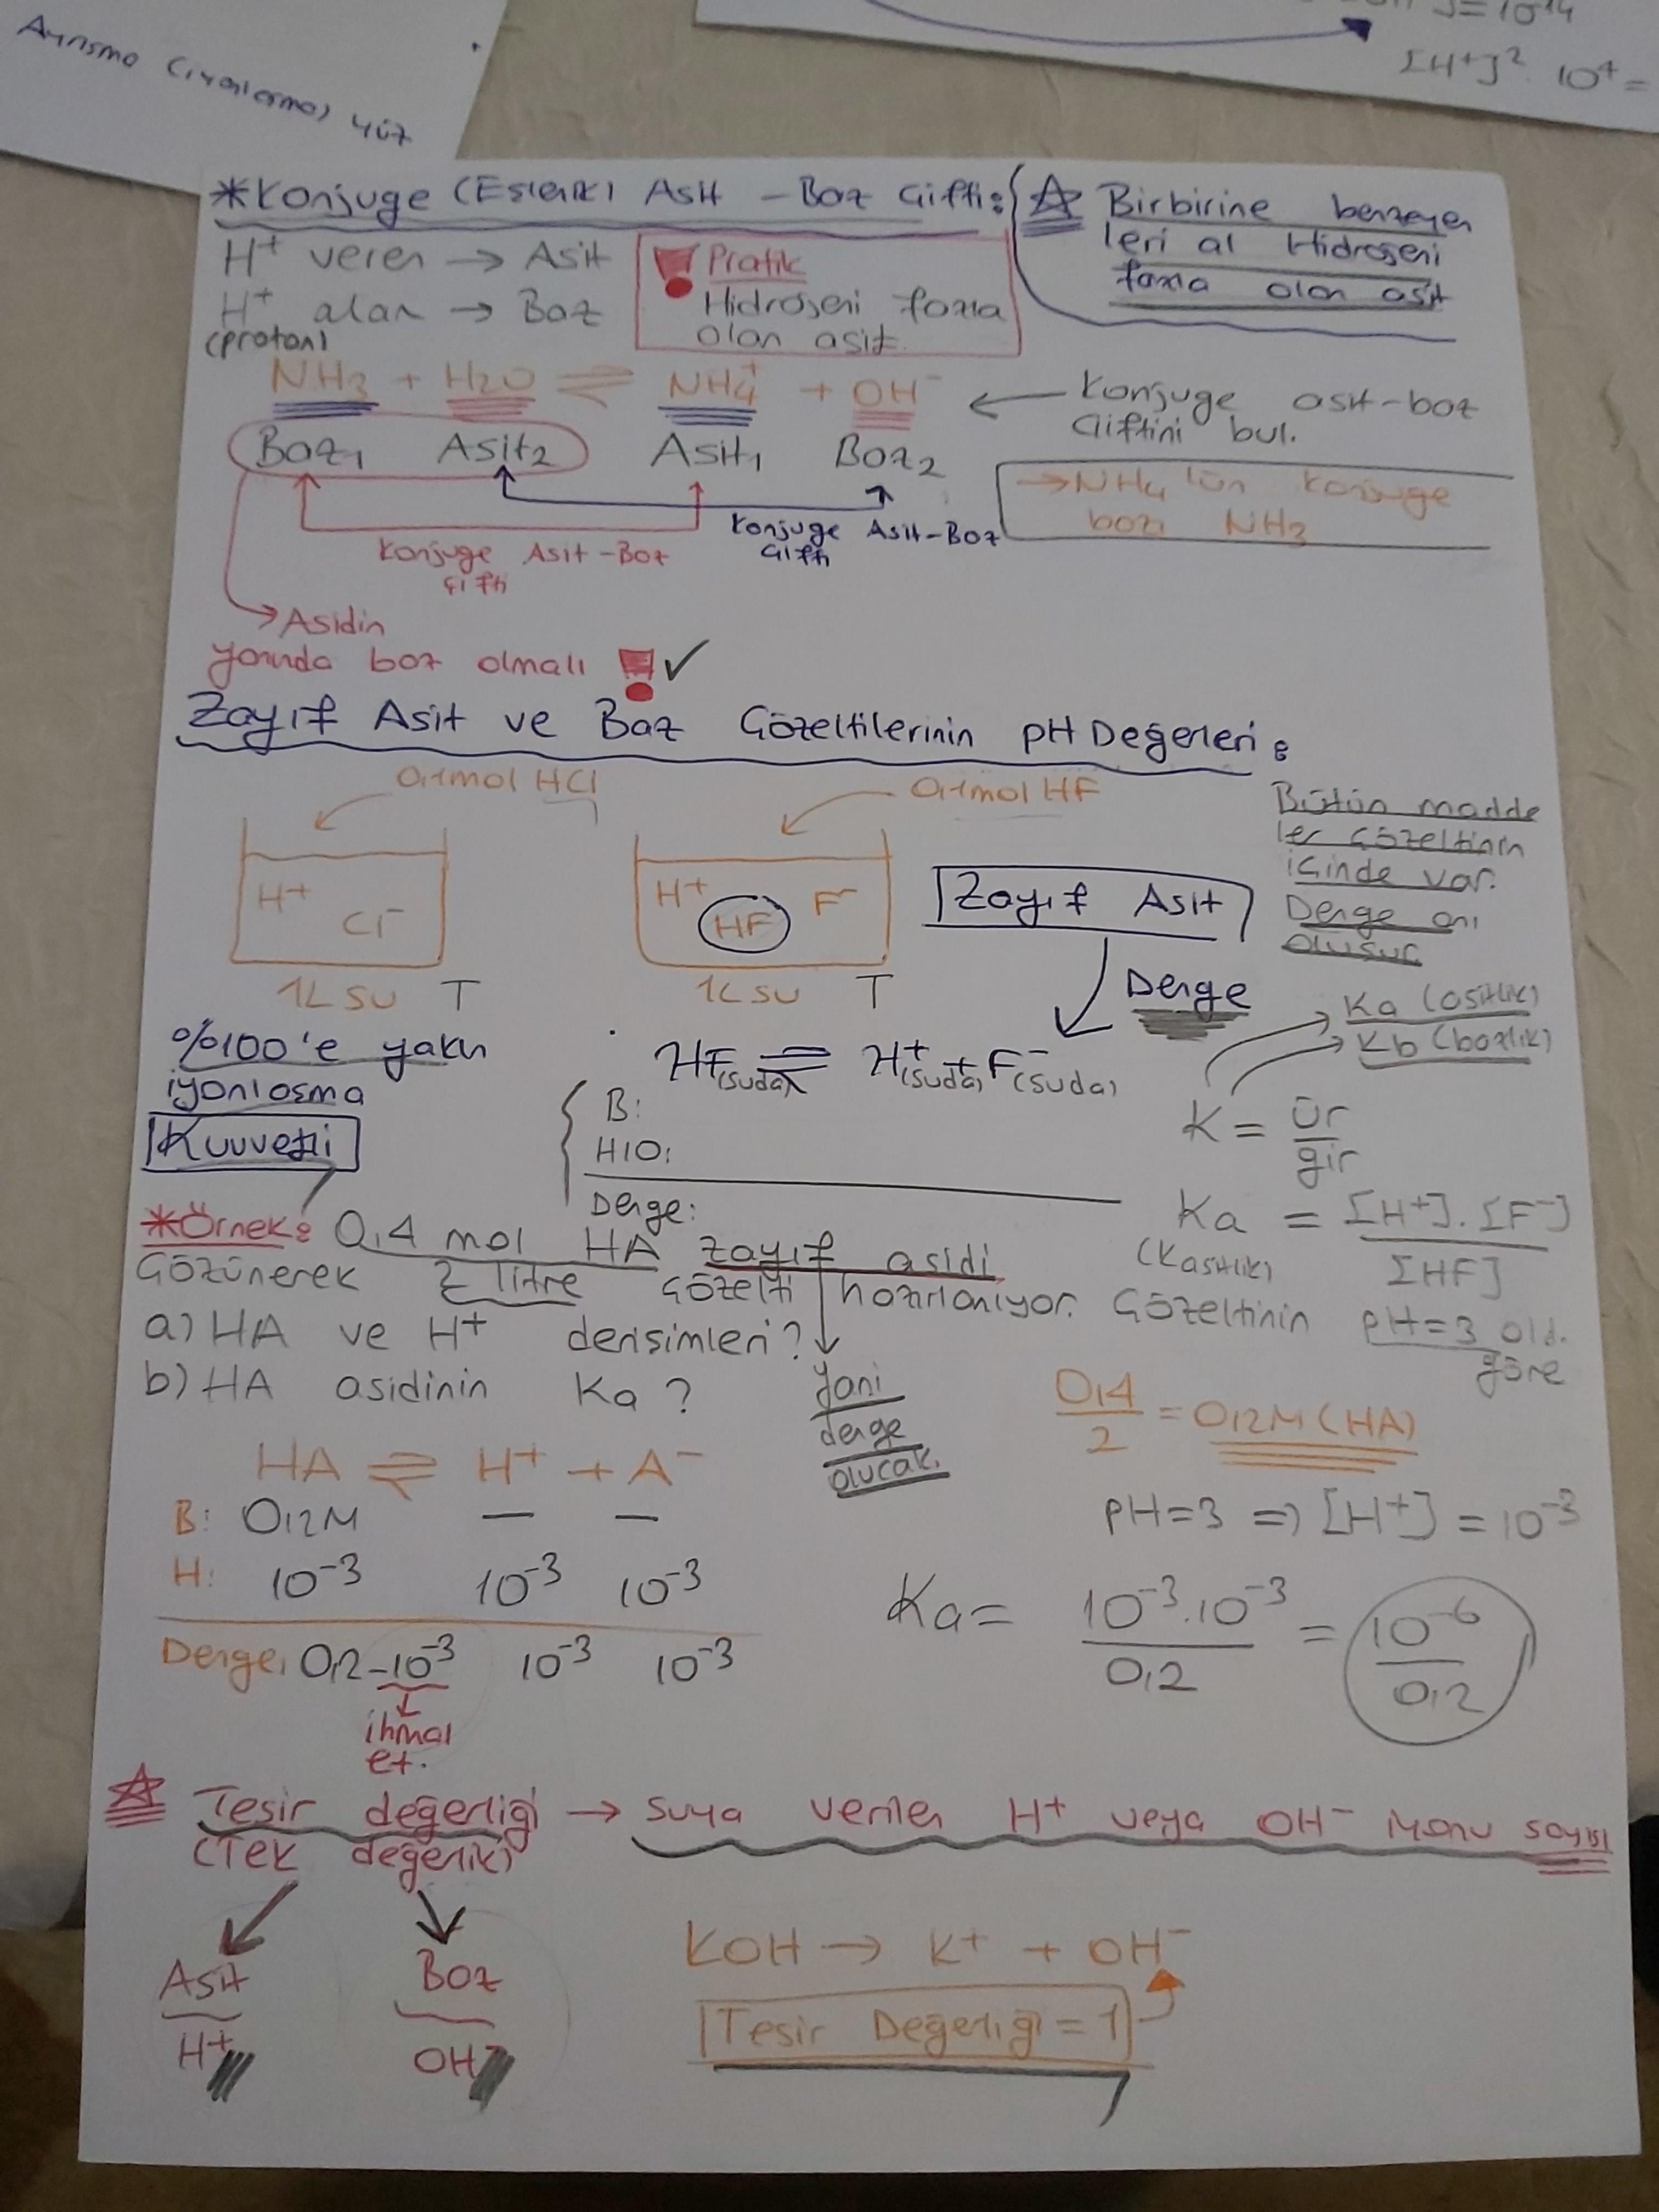 Ayrısma (iyonlasma) yüz
]=10-14
[H+]². 10⁴ =
*Konjuge (Eslenik) Asit – Baz Çifti:
H+ veren → Asit
H+ alan → Baz
(proton)
! Pratik
Hidrojeni fazla
olan asit.
☆ Birbirine benzeyen
leri al Hidrojeni
fazla olan asit
NH3 + H2O ⇌ NH4+ + OH-
Baz1 Asit2 Asit1 Baz2
← Konjuge asit-baz
Çiftini bul.
→NH4 'ün konjuge
bazı NH3
Konjuge Asit-Baz
Çifti
Konjuge Asit-Baz
Çifti
→Asidin
yanında baz olmalı ! ✓
Zayıf Asit ve Baz Çözeltilerinin pH Değerleri:
0,1mol HCl
0,1mol HF
H+
Cl-
1L su T
H+ HF F-
1L su T
Zayıf Asit
Bütün madde
ler çözeltinin
içinde var.
Denge anı
olusur.
Denge
%100'e yakın
iyonlosma
Kuvvetli
HF(suda) ⇌ H+(suda) + F-(suda)
B:
H/O:
Denge:
Ka (asitlik)
Kb (bazlık)
K = ür/gir
Ka = [H+].[F-]/[HF]
(Kasitlik)
*Örnek: 0,4 mol HA zayıf asidi
Çözünerek 2 litre çözelti hazırlanıyor. Çözeltinin pH=3 old.
göre
a) HA ve H+ derisimleri?
b) HA asidinin Ka ?
yani
denge
olucak.
0,4/2 = 0,2M (HA)
HA ⇌ H+ + A-
B: 0,2M — —
H: 10-3 10-3 10-3
Denge: 0,2-10-3 10-3 10-3
ihmal
et.
pH=3 => [H+] = 10-3
Ka= 10-3.10-3/0,2 = 10-6/0,2
☆ Tesir değerliği → suya verilen H+ veya OH- iyonu sayısı
(Tek değerlik)
Asit
H+
Baz
OH-
KOH → K+ + OH-
Tesir Değerliği = 1